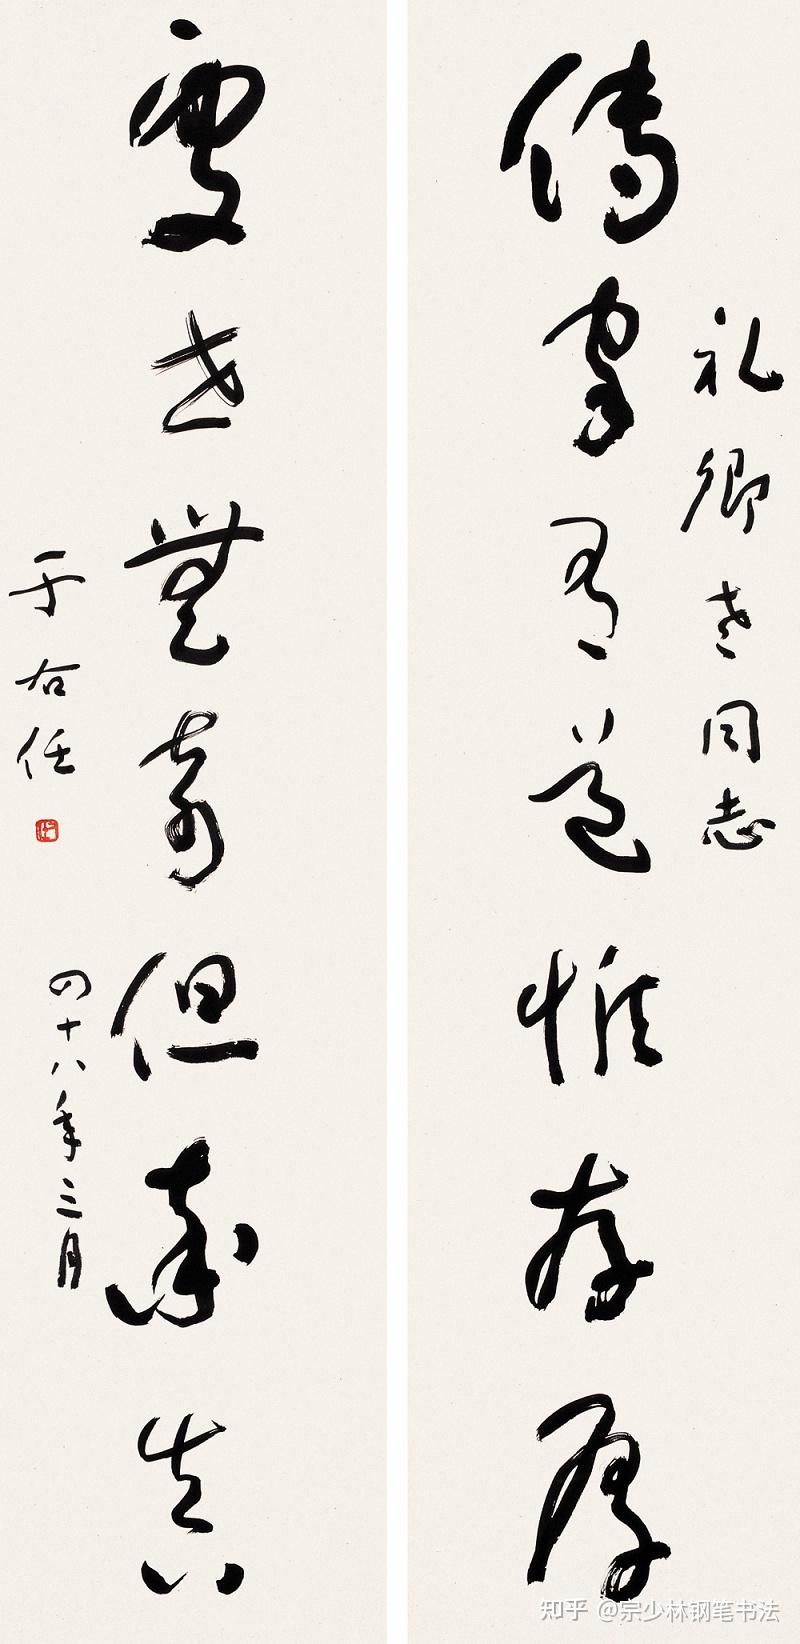 礼卿老同志
傳家有道惟存厚
處世無奇但率真
四十八年三月
于右任
知乎 @宗少林钢笔书法